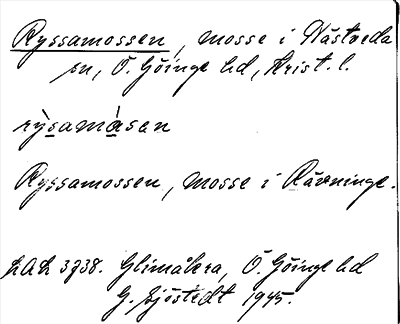 Ryssamossen, mosse i Västveda
sn, Ö. Göinge hd, Krist. l.
rỳsamȧsan
Ryssamossen, mosse i Rävninge.
LAL 3738. Glimåkra, Ö. Göinge hd
G. Sjöstedt 1945.